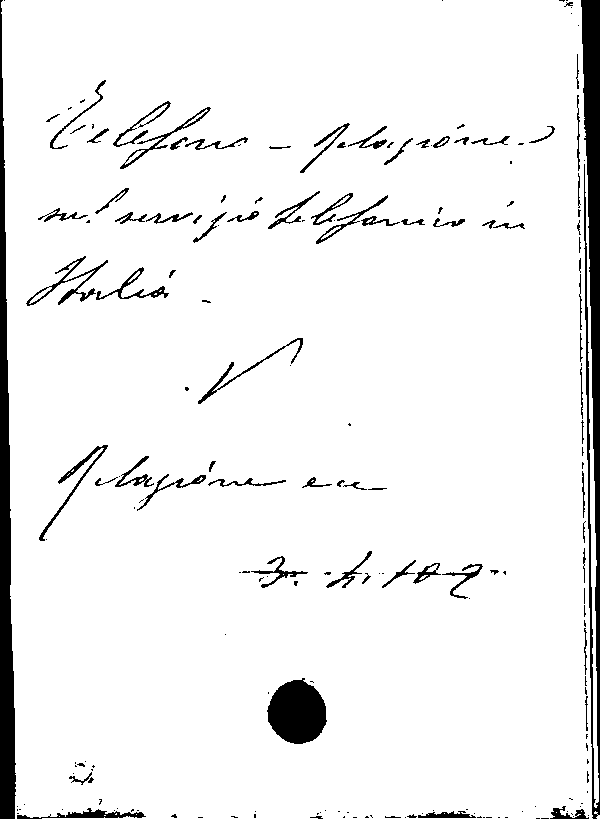 Telefono - Relazione
sul servizio telefonico in
Italia -
V
Relazione ecc
3. h. 102